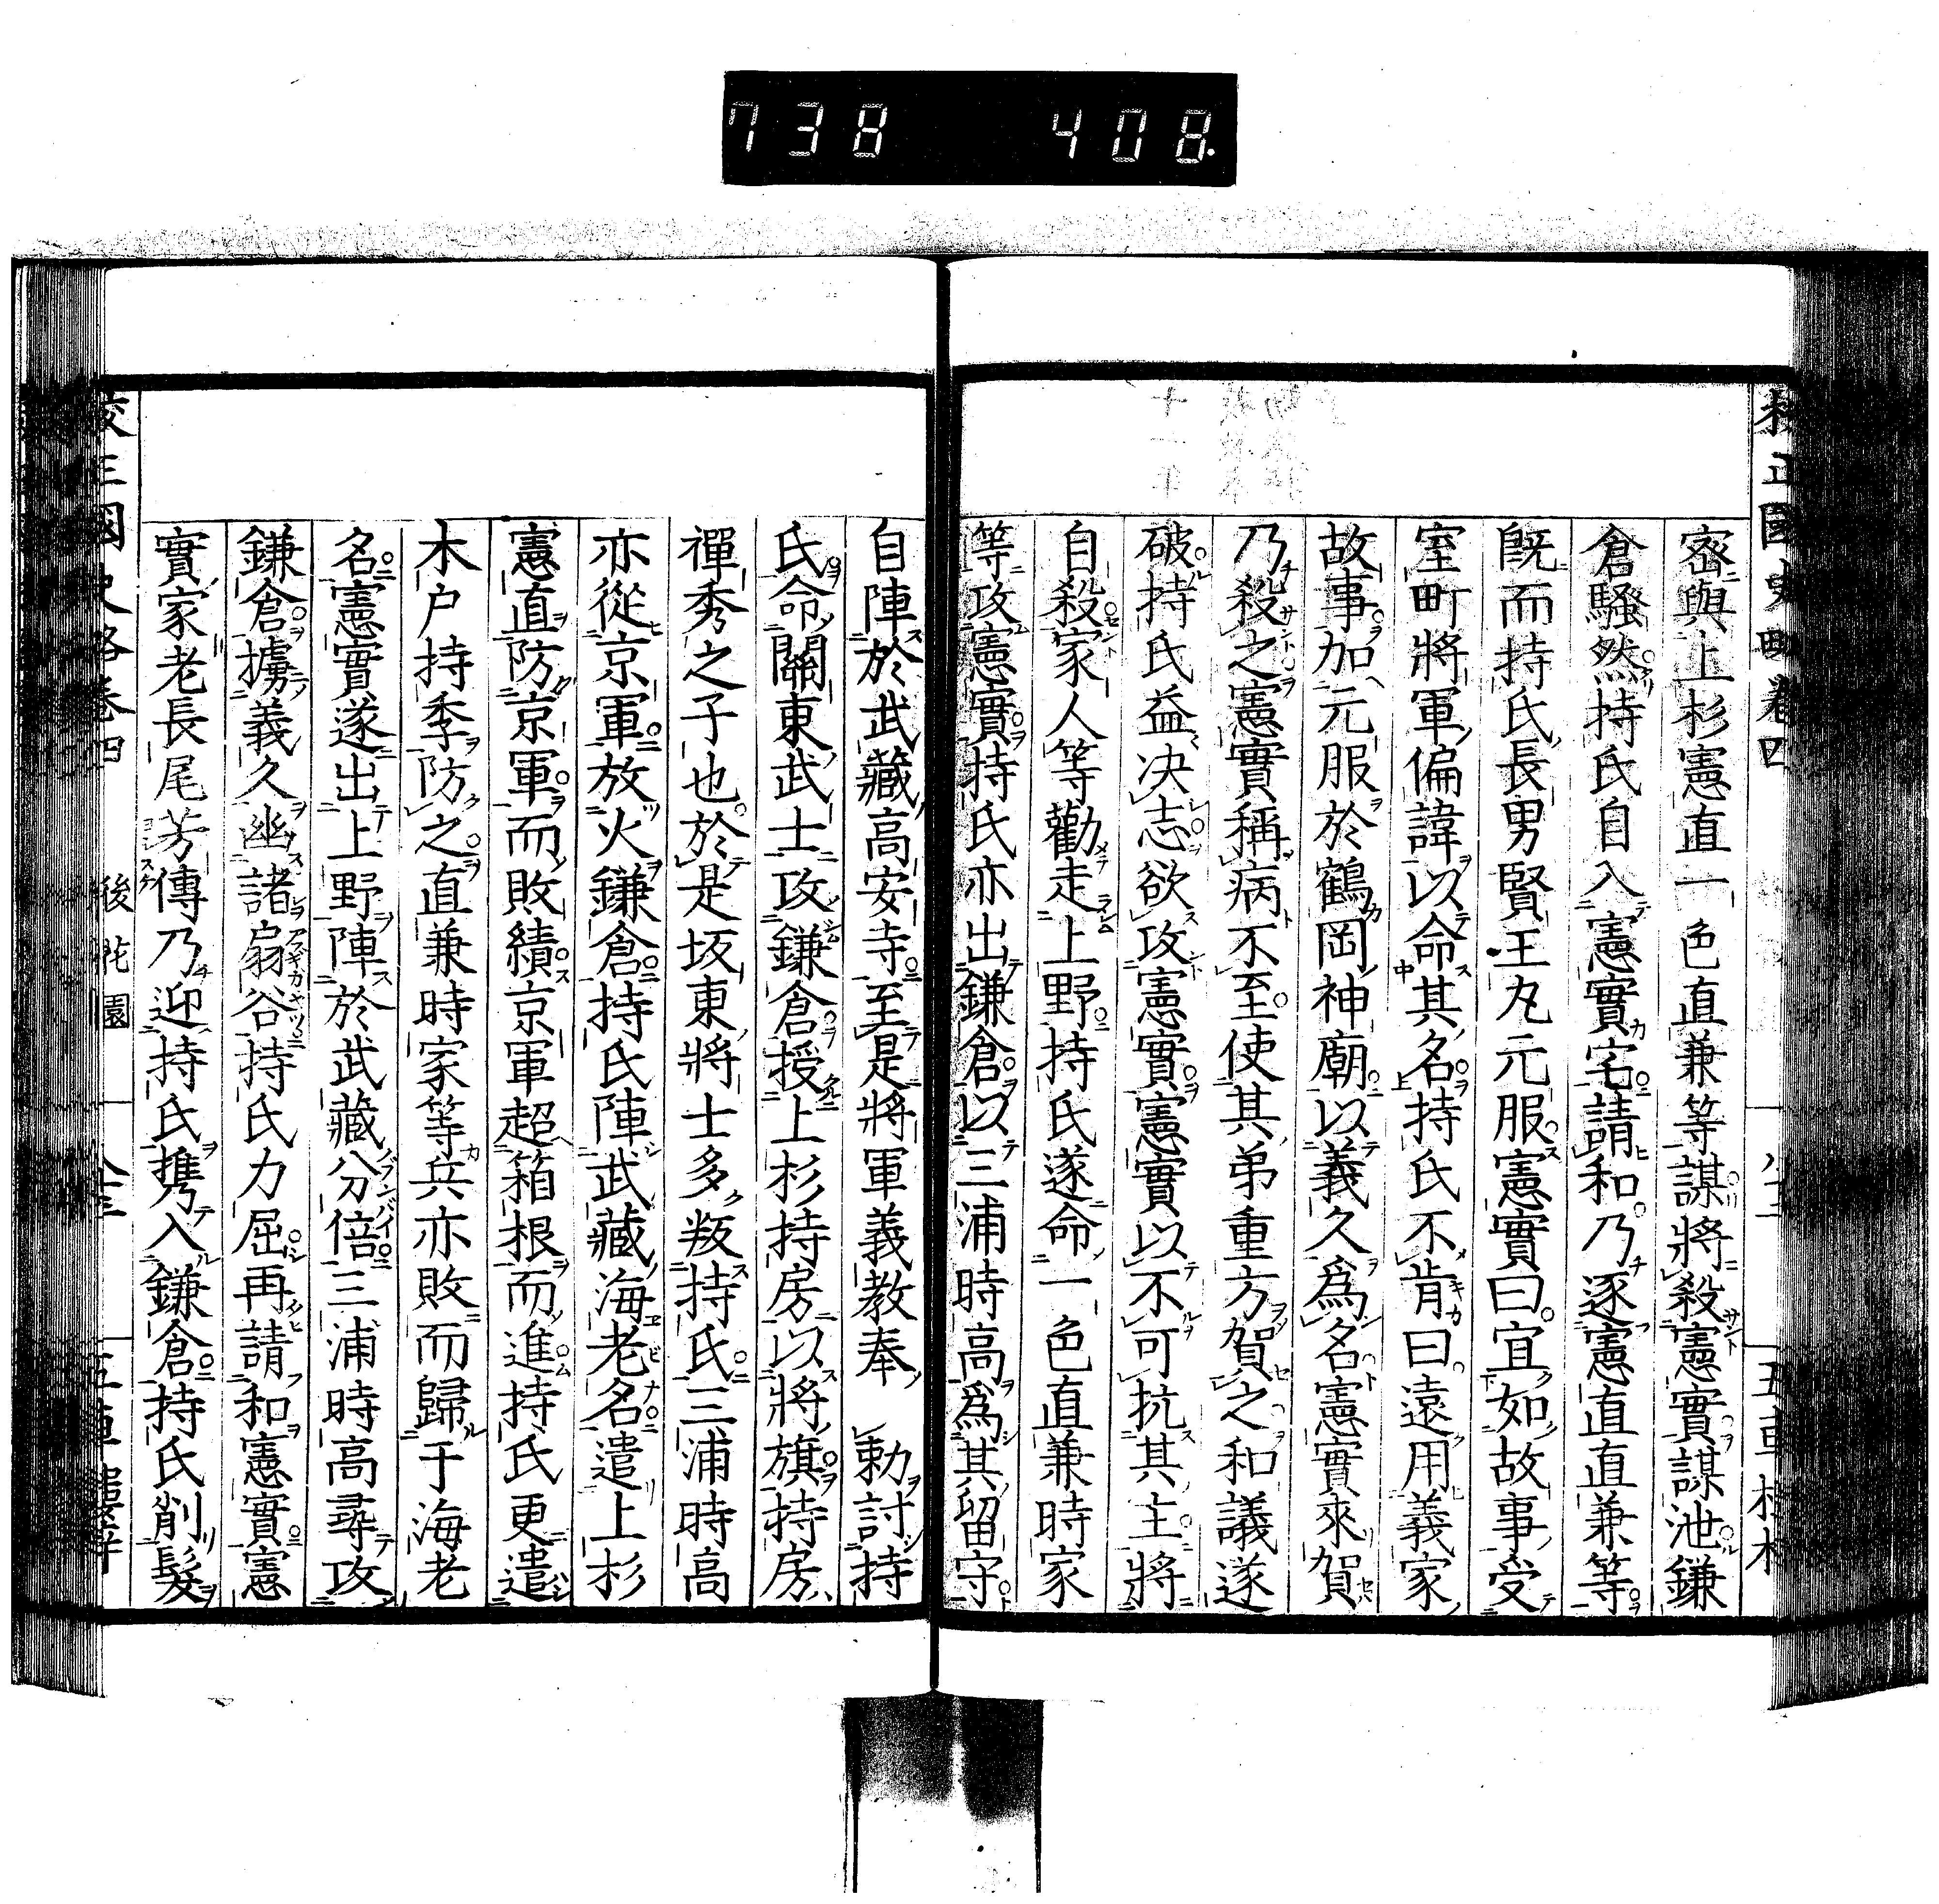 738 408
校正國史略卷四
密與上杉憲直一色直兼等謀將殺憲實謀泄鎌
倉騷然持氏自入憲實宅請和乃逐憲直直兼等
既而持氏長男賢王丸元服憲實曰宜如故事受
室町將軍偏諱以命其名持氏不肯曰遠用義家
故事加元服於鶴岡神廟以義久爲名憲實來賀
乃殺之憲實稱病不至使其弟重方賀之和議遂
破持氏益決志欲攻憲實憲實以不可抗其主將
自殺家人等勸走上野持氏遂命一色直兼時家
等攻憲實持氏亦出鎌倉以三浦時高爲其留守
自陣於武藏高安寺至是將軍義教奉 勅討持
氏命關東武士攻鎌倉授上杉持房以將旗持房
禪秀之子也於是坂東將士多叛持氏三浦時高
亦從京軍放火鎌倉持氏陣武藏海老名遣上杉
憲直防京軍而敗績京軍超箱根而進持氏更遣
木戸持季防之直兼時家等兵亦敗而歸于海老
名憲實遂出上野陣於武藏分倍三浦時高尋攻
鎌倉擄義久幽諸扇谷持氏力屈再請和憲實憲
實家老長尾芳傳乃迎持氏携入鎌倉持氏削髮
校正國史略卷四 後花園